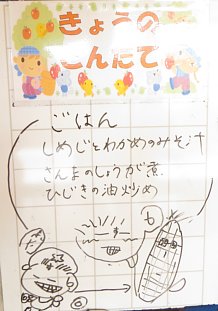 きょうの
こんだて
ごはん
しめじとわかめのみそ汁
さんまのしょうが煮
ひじきの油炒め